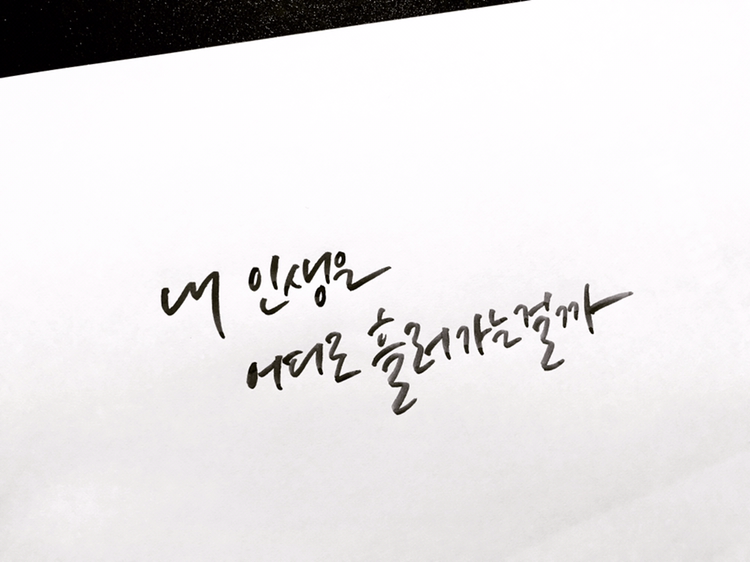 내 인생은
어디로 흘러가는걸까